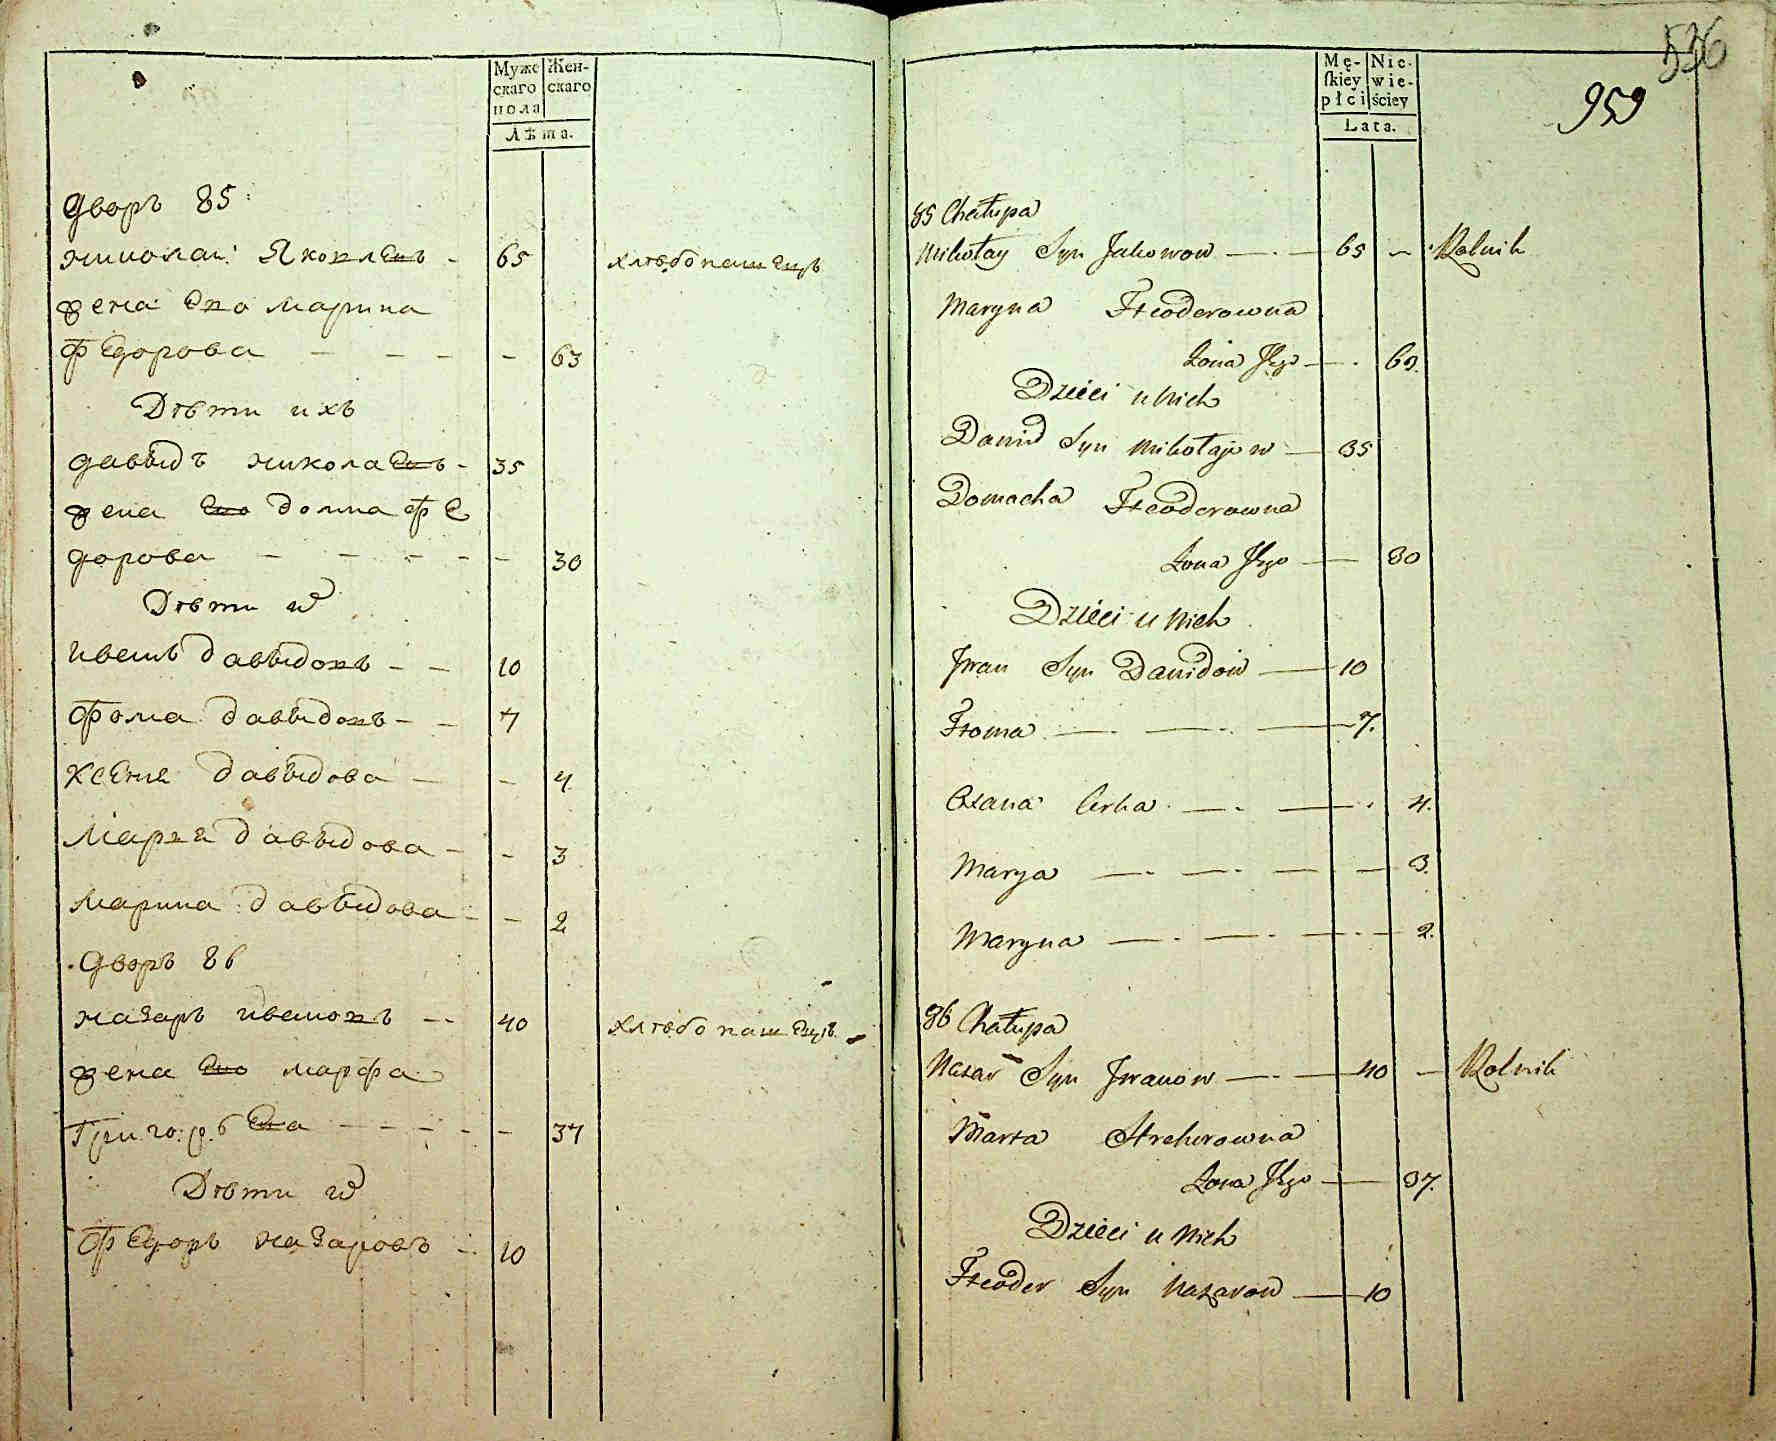 Муже
скаго
пола
Жен-
скаго
Лѣта.
дворъ 85
николаи Яковлевъ - 65 хлѣбопашецъ
жена Ево марина
Федорова - - - - 63
Дѣти ихъ
давыдъ николаевъ - 35
жена Ево домна Фе
дорова - - - - - 30
Дѣти ихъ
иванъ давыдовъ - - 10
Фома давыдовъ - - 7
Ксения давыдова - - 4
Мария давыдова - - 3
марина давыдова - - 2
дворъ 86
назаръ ивановъ - - 40 хлѣбопашецъ
жена Ево марфа
Григорьева - - - - - 37
Дѣти
Федоръ назаровъ - 10
536
959
Mę-
skiey
płci
Nie-
wie-
ściey
Lata.
85 Chałupa
Mikołay Syn Jakowow — 65 - Rolnik
Maryna Fteodorowna
Żona Jego — 63.
Dzieci u Nich
Dawid Syn Mikołajow — 35
Domacha Fteodorowna
Żona Jego — 30
Dzieci u Nich
Jwan Syn Dawidow — 10
Ftoma — 7.
Oxana Corka — 4.
Marya — 3.
Maryna — 2.
86 Chałupa
Nazar Syn Jwanow — 40 — Rolnik
Marta
Żona Jego — 37.
Dzieci u Nich
Fteoder Syn Nazarow — 10